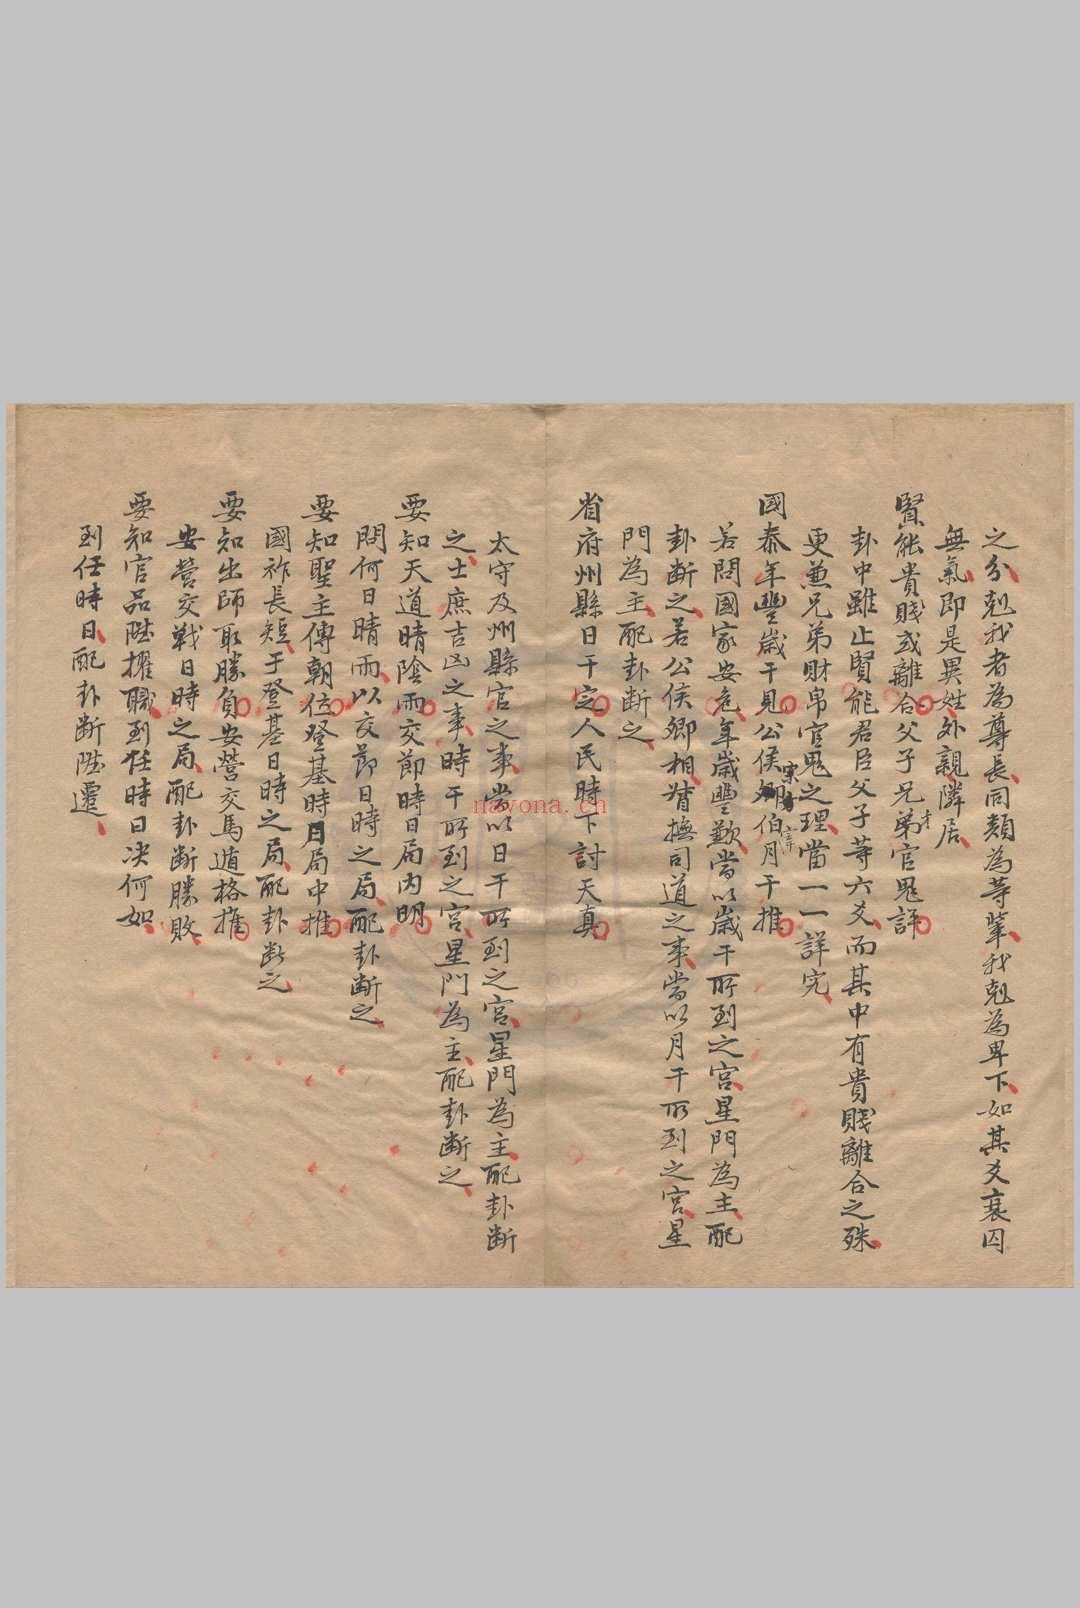 之分剋我者為尊長同類為等輩我剋為卑下如其爻衰囚
無氣即是異姓外親隣居
賢能貴賤或離合父子兄弟才官鬼評
卦中雖止賢能君臣父子等六爻而其中有貴賤離合之殊
更兼兄弟財帛官鬼之理當一一詳究
國泰年豐歲干見公侯伯月干推
若問國家安危年歲豐歉當以歲干所到之宮星門為主配
卦斷之若公侯卿相督撫司道之事當以月干所到之宮星
門為主配卦斷之
省府州縣日干定人民時下討天真
太守及州縣官之事當以日干所到之宮星門為主配卦斷
之士庶吉凶之事時干所到之宮星門為主配卦斷之
要知天道晴陰雨交節時日局內明
問何日晴雨以交節日時之局配卦斷之
要知聖主傳朝位登基時日局中推
國祚長短于登基日時之局配卦斷之
要知出師取勝負安營交馬遁格推
安營交戰日時之局配卦斷勝敗
要知官品陞擢職到任時日决何如
到任時日配卦斷陞遷
nayona.cn